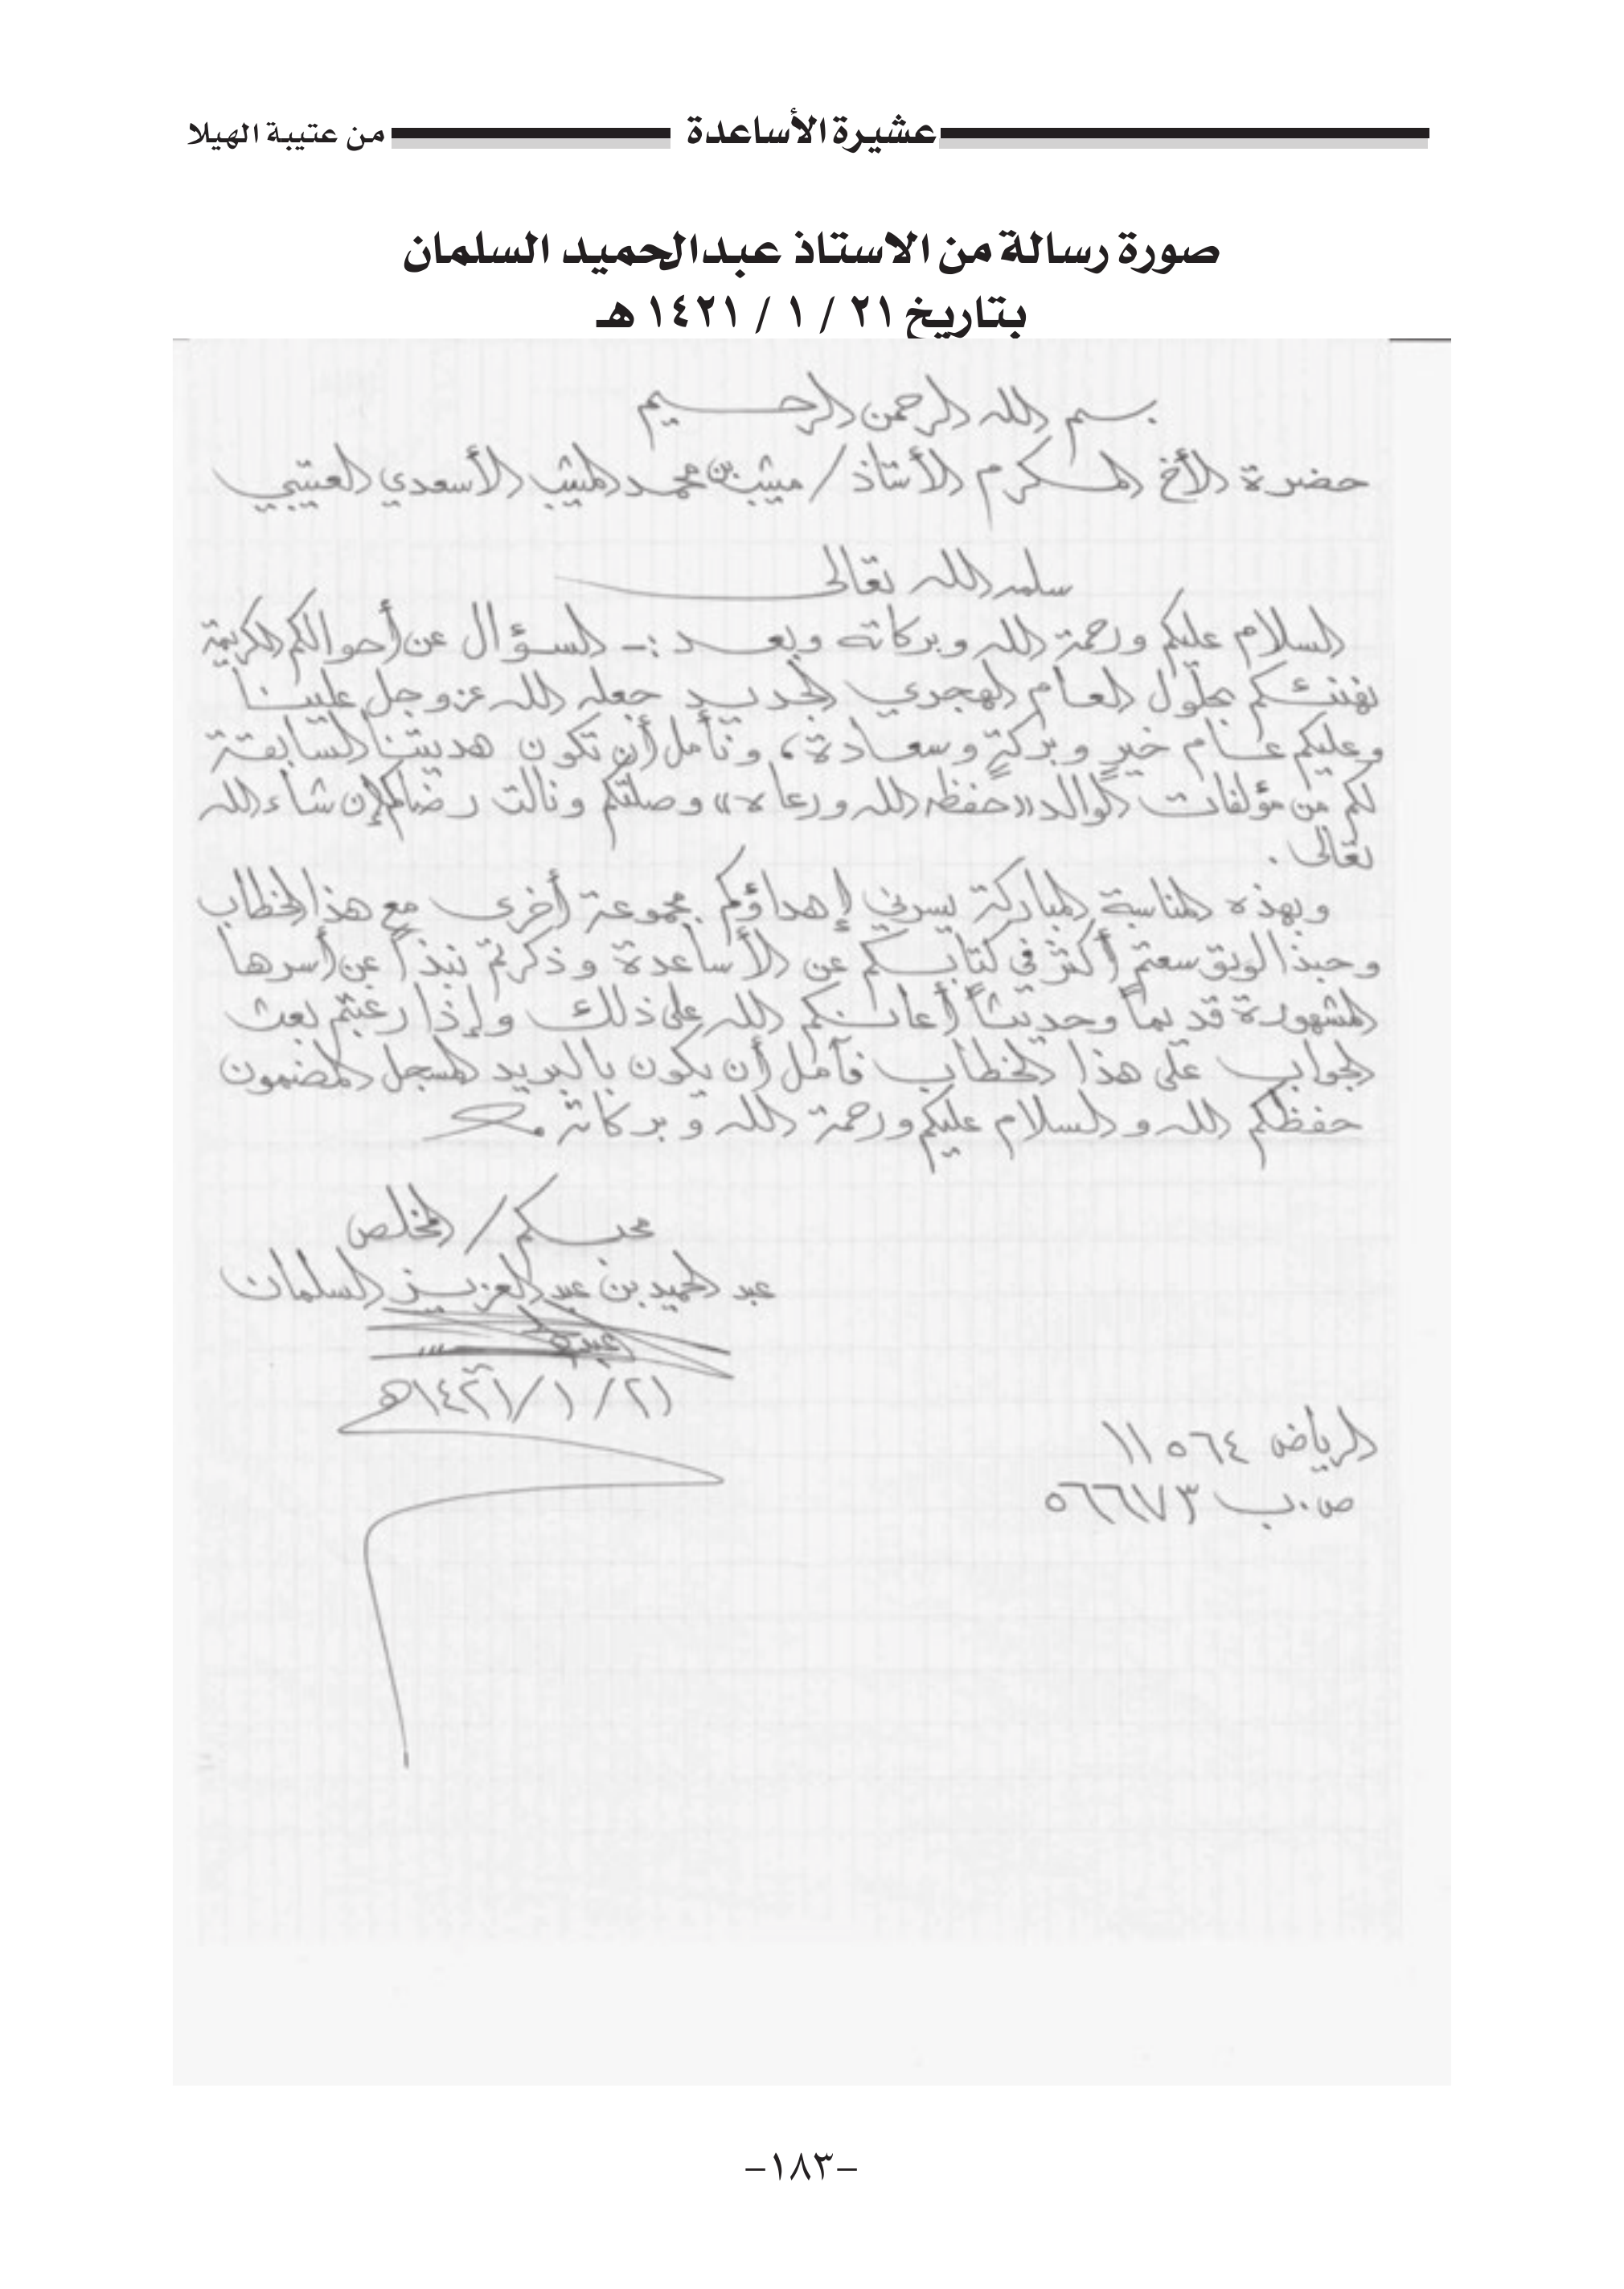 عشيرة الأساعدة
من عتيبة الهيلا
صورة رسالة من الاستاذ عبدالحميد السلمان
بتاريخ ٢١ / ١ / ١٤٢١ هـ
بسم الله الرحمن الرحيم
حضرة الأخ المكرم الأستاذ / ميثب بن محمد المثيب الأسعدي العتيبي
سلمه الله تعالى
السلام عليكم ورحمة الله وبركاته وبعد :- السؤال عن أحوالكم الكريمة
نهنئكم بحلول العام الهجري الجديد جعله الله عز وجل علينا
وعليكم عام خيرٍ وبركةٍ وسعادة، ونأمل أن تكون هديتنا السابقة
لكم من مؤلفات الوالد «حفظه الله ورعاه» وصلتكم ونالت رضاكم إن شاء الله
تعالى .
وبهذه المناسبة المباركة يسرني إهداؤكم مجموعة أخرى مع هذا الخطاب
وحبذا لو توسعتم أكثر في كتابكم عن الأساعدة وذكرتم نبذاً عن أسرها
المشهورة قديماً وحديثاً أعانكم الله على ذلك وإذا رغبتم بعث
الجواب على هذا الخطاب فآمل أن يكون بالبريد المسجل المضمون
حفظكم الله والسلام عليكم ورحمة الله وبركاته
محبكم / المخلص
عبد الحميد بن عبد العزيز السلمان
٢١ / ١ / ١٤٢١هـ
الرياض ١١٥٦٤
ص.ب ٥٦٦٧٣
-١٨٣-